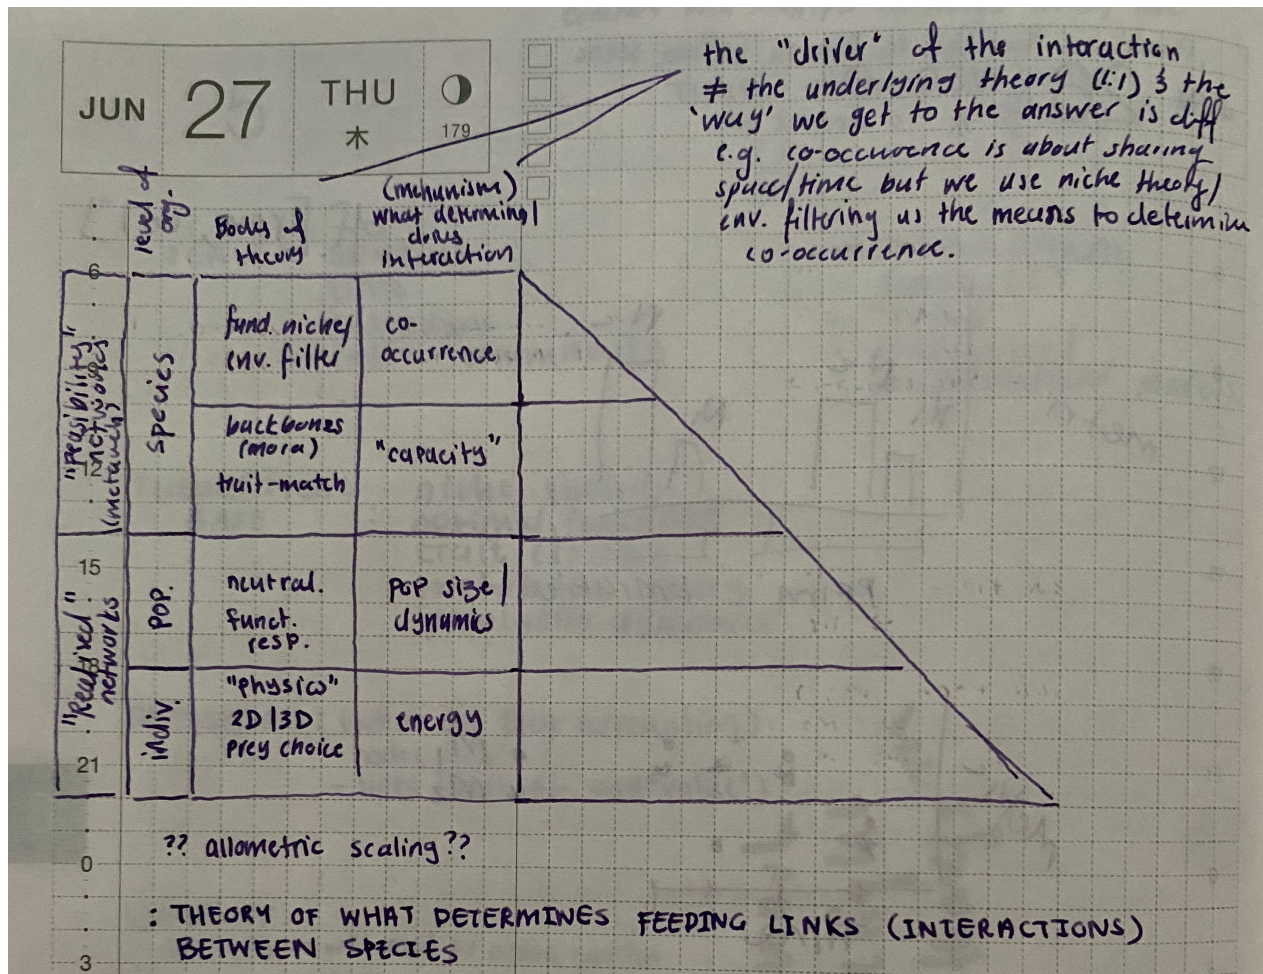 JUN 27 THU
木
179
the "driver" of the interaction
≠ the underlying theory (1:1) & the
'way' we get to the answer is diff
e.g. co-occurence is about sharing
space/time but we use niche theory/
env. filtering as the means to determine
co-occurrence.
level of
org.
Body of
theory
(mechanism)
what determine/
drives
interaction
6
"Feasibility"
networks
(metaweb)
species
fund. niche/
env. filter
co-
occurrence
12
backbones
(mora)
trait-match
"capacity"
15
"Realised"
networks
pop.
neutral.
funct.
resp.
pop size/
dynamics
indiv.
"physics"
2D/3D
prey choice
energy
21
?? allometric scaling??
0
: THEORY OF WHAT DETERMINES FEEDING LINKS (INTERACTIONS)
BETWEEN SPECIES
3